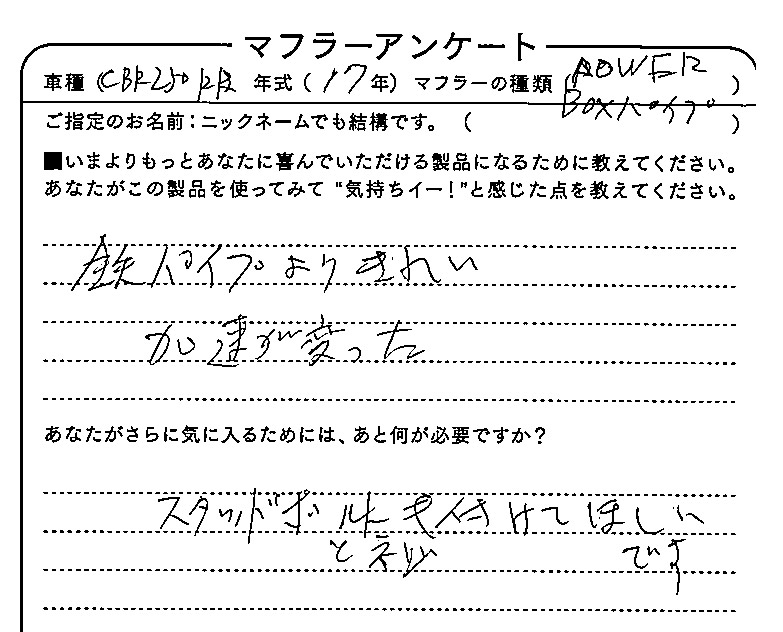 マフラーアンケート
車種（CBR250RR 年式（17年）マフラーの種類（POWER
BOXパイプ）
ご指定のお名前：ニックネームでも結構です。（ ）
■いまよりもっとあなたに喜んでいただける製品になるために教えてください。
あなたがこの製品を使ってみて“気持ちイー！”と感じた点を教えてください。
鉄パイプよりきれい
加速が変った
あなたがさらに気に入るためには、あと何が必要ですか？
スタッドボルトも付けてほしい
とネジ です